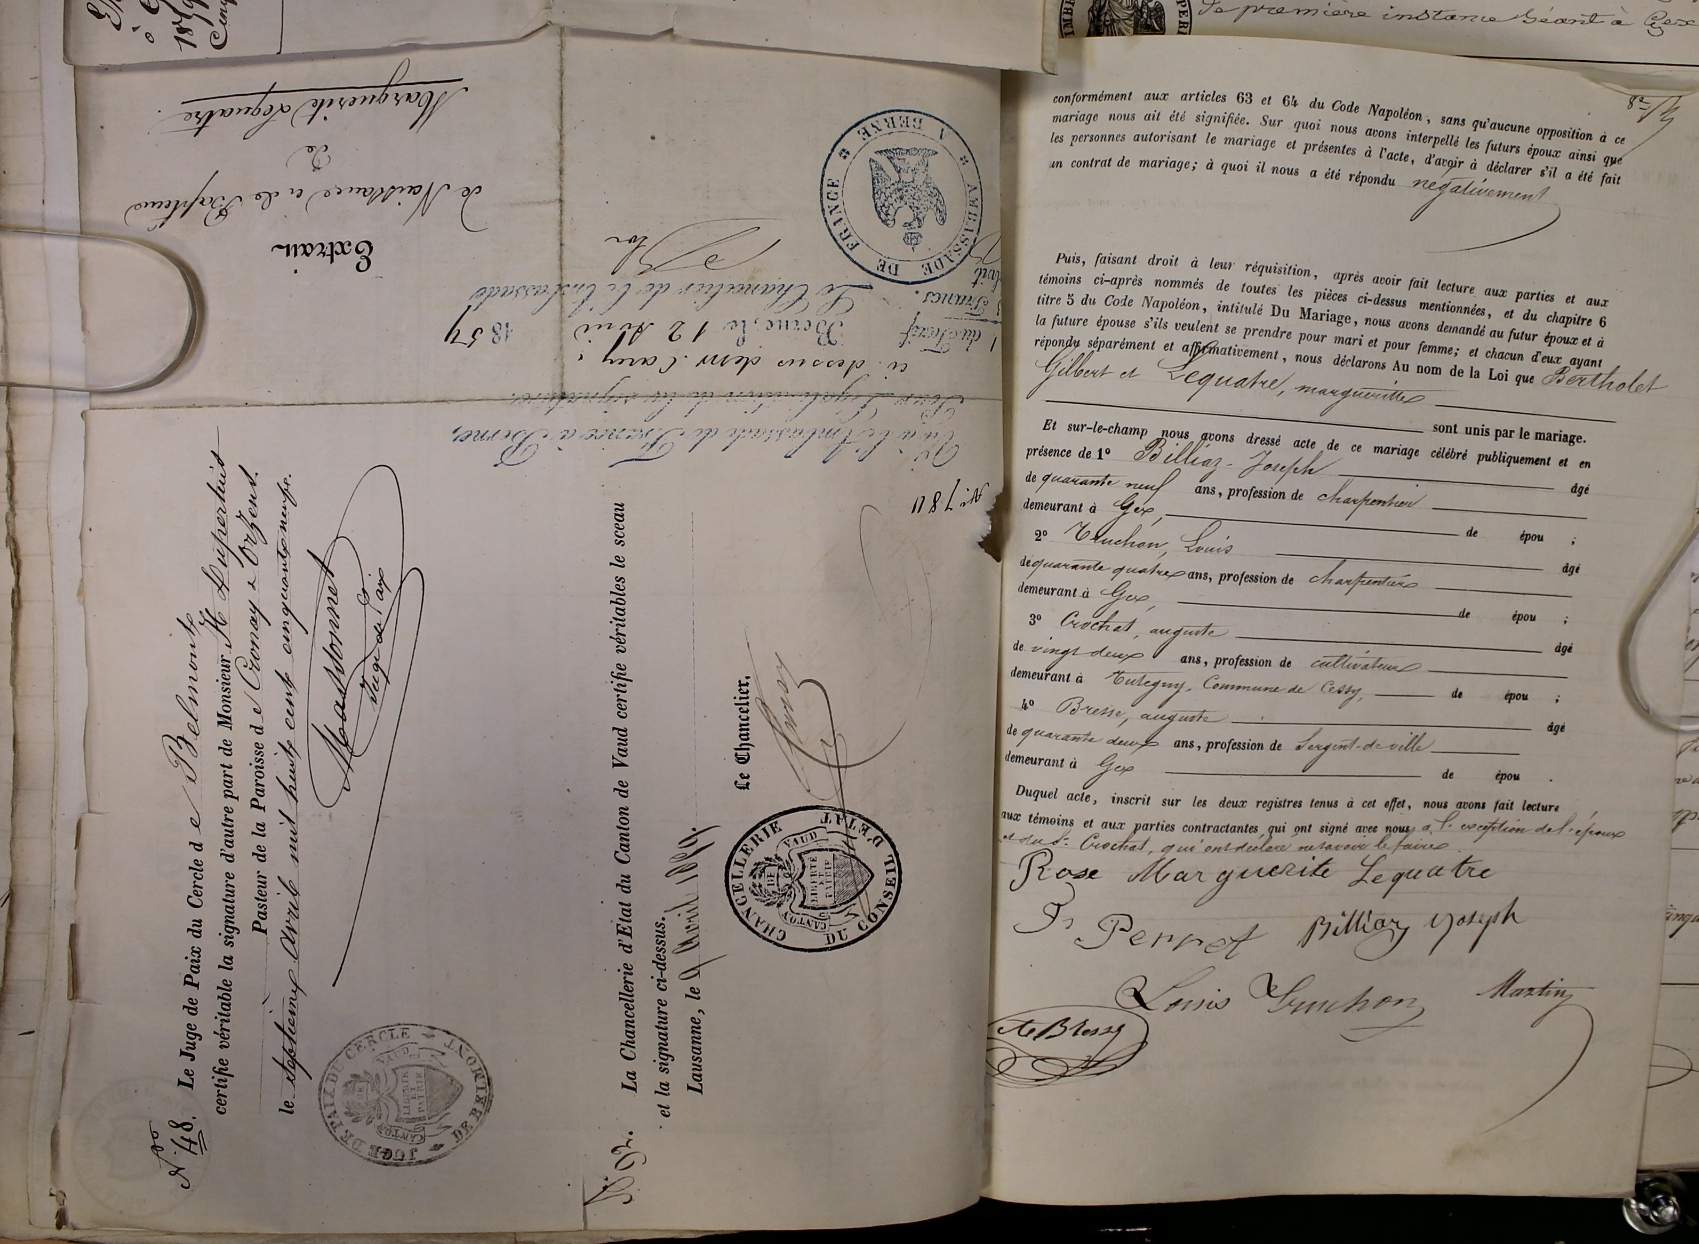 de première instance Séant à Gex
Extrait
de Naissance et de Baptême
de
Marguerite Lequatre
N° 48.
Le Juge de Paix du Cercle de Belmont
certifie véritable la signature d'autre part de Monsieur H. Dupertuis
Pasteur de la Paroisse de Cronay & Orzens.
le septième avril mil huit cent cinquante neuf.
Massonnet
Juge de Paix
JUGE DE PAIX DU CERCLE DE BELMONT
CANTON DE VAUD
LIBERTÉ ET PATRIE
N° 92.
La Chancellerie d'Etat du Canton de Vaud certifie véritables le sceau
et la signature ci-dessus.
Lausanne, le 9 Avril 1859.
Le Chancelier,
CHANCELLERIE DU CONSEIL D'ETAT
CANTON DE VAUD
LIBERTÉ ET PATRIE
Vu à l'Ambassade de France à Berne,
Pour Légalisation de la signature
ci-dessus de Mr. Carey
Berne, le 12 Avril 1859
Le Chancelier de l'Ambassade
du Tarif
Francs.
AMBASSADE DE FRANCE A BERNE
conformément aux articles 63 et 64 du Code Napoléon, sans qu'aucune opposition à ce
mariage nous ait été signifiée. Sur quoi nous avons interpellé les futurs époux ainsi que
les personnes autorisant le mariage et présentes à l'acte, d'avoir à déclarer s'il a été fait
un contrat de mariage; à quoi il nous a été répondu négativement
Puis, faisant droit à leur réquisition, après avoir fait lecture aux parties et aux
témoins ci-après nommés de toutes les pièces ci-dessus mentionnées, et du chapitre 6
titre 5 du Code Napoléon, intitulé Du Mariage, nous avons demandé au futur époux et à
la future épouse s'ils veulent se prendre pour mari et pour femme; et chacun d'eux ayant
répondu séparément et affirmativement, nous déclarons Au nom de la Loi que Bertholet
Gilbert et Lequatre, margueritte
sont unis par le mariage.
Et sur-le-champ nous avons dressé acte de ce mariage célébré publiquement et en
présence de 1° Billiaz Joseph âgé
de quarante neuf ans, profession de charpentier
demeurant à Gex, de épou ;
2° Truchon, Louis âgé
de quarante quatre ans, profession de charpentier
demeurant à Gex, de épou ;
3° Crochat, auguste âgé
de vingt deux ans, profession de cultivateur
demeurant à Tutegny, Commune de Cessy, de épou ;
4° Bresse, auguste âgé
de quarante deux ans, profession de Sergent-de-ville
demeurant à Gex de épou .
Duquel acte, inscrit sur les deux registres tenus à cet effet, nous avons fait lecture
aux témoins et aux parties contractantes qui ont signé avec nous, à l'exception de l'époux
et du Sr Crochat, qui ont déclaré ne savoir le faire.
Rose Marguerite Lequatre
Perret Billiaz Joseph
Louis Truchon Martin